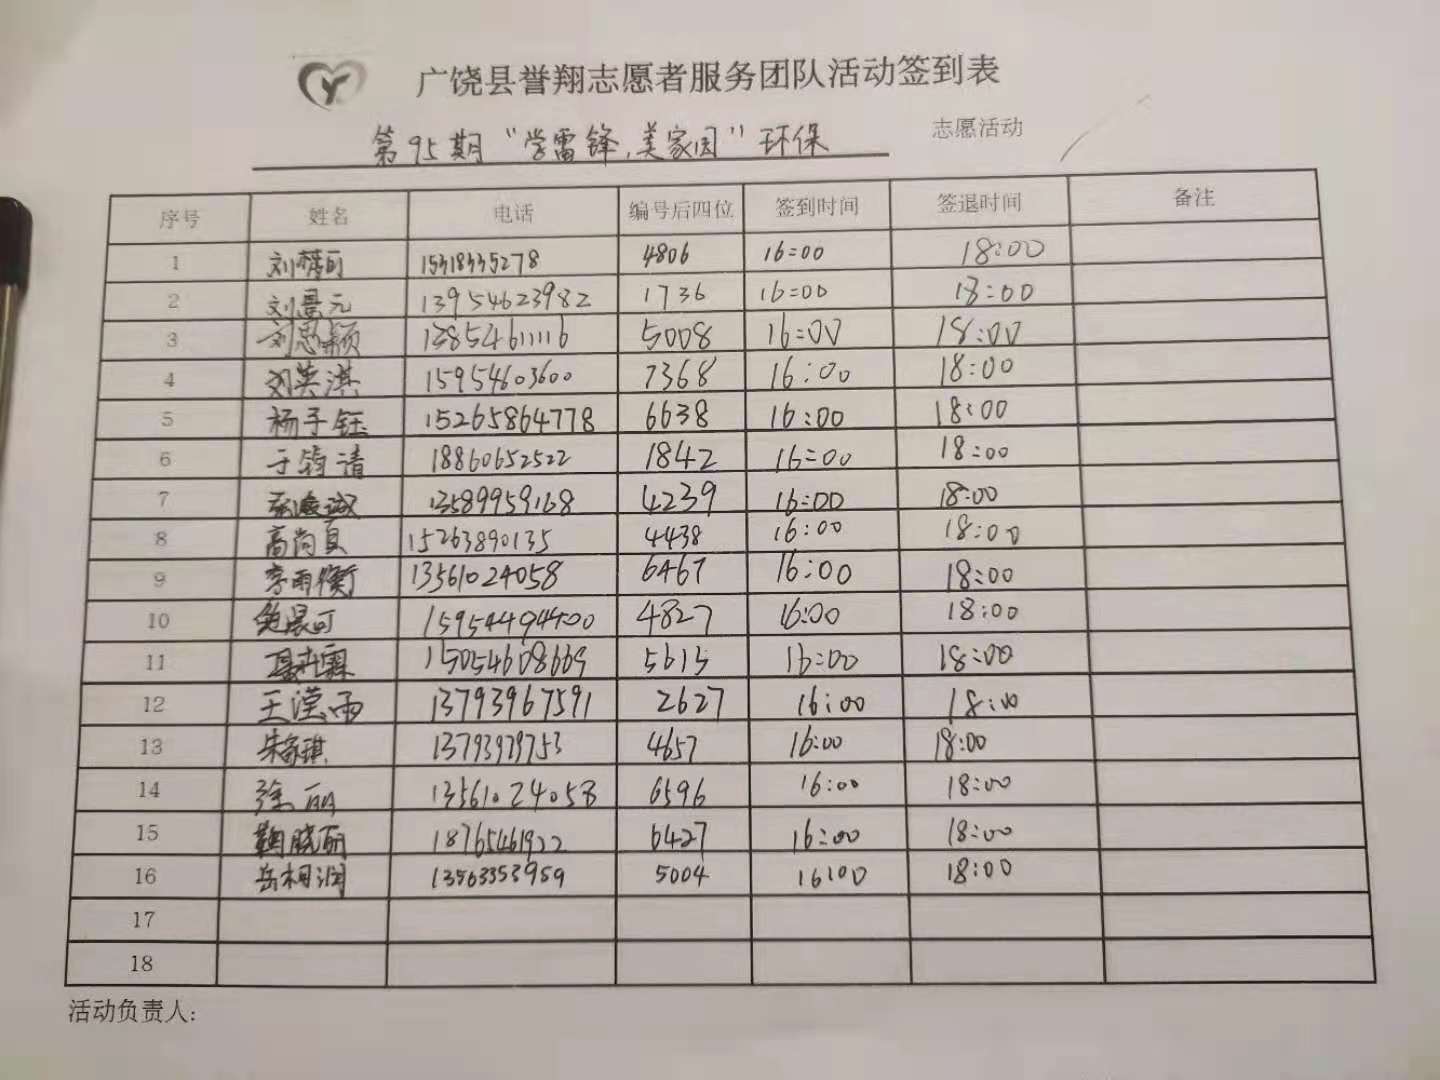 广饶县誉翔志愿者服务团队活动签到表
第95期“学雷锋,美家园”环保 志愿活动
序号 姓名 电话 编号后四位 签到时间 签退时间 备注
1 15318335278 4806 16:00 18:00
2 刘景元 13954623982 1736 16:00 18:00
3 刘思颖 13854611116 5008 16:00 18:00
4 刘英淇 15954603600 7368 16:00 18:00
5 杨子钰 15265864778 6638 16:00 18:00
6 于钧清 18860652522 1842 16:00 18:00
7 13589959168 4239 16:00 18:00
8 高尚真 15263890135 4438 16:00 18:00
9 李雨衡 13561024058 6467 16:00 18:00
10 15954494400 4827 16:00 18:00
11 15054608669 5615 16:00 18:00
12 王滢雨 13793967591 2627 16:00 18:00
13 朱家琪 13793979753 4657 16:00 18:00
14 徐丽 13561024058 6596 16:00 18:00
15 鞠晓丽 18765461922 6427 16:00 18:00
16 岳相润 13563353959 5004 16:00 18:00
17
18
活动负责人: